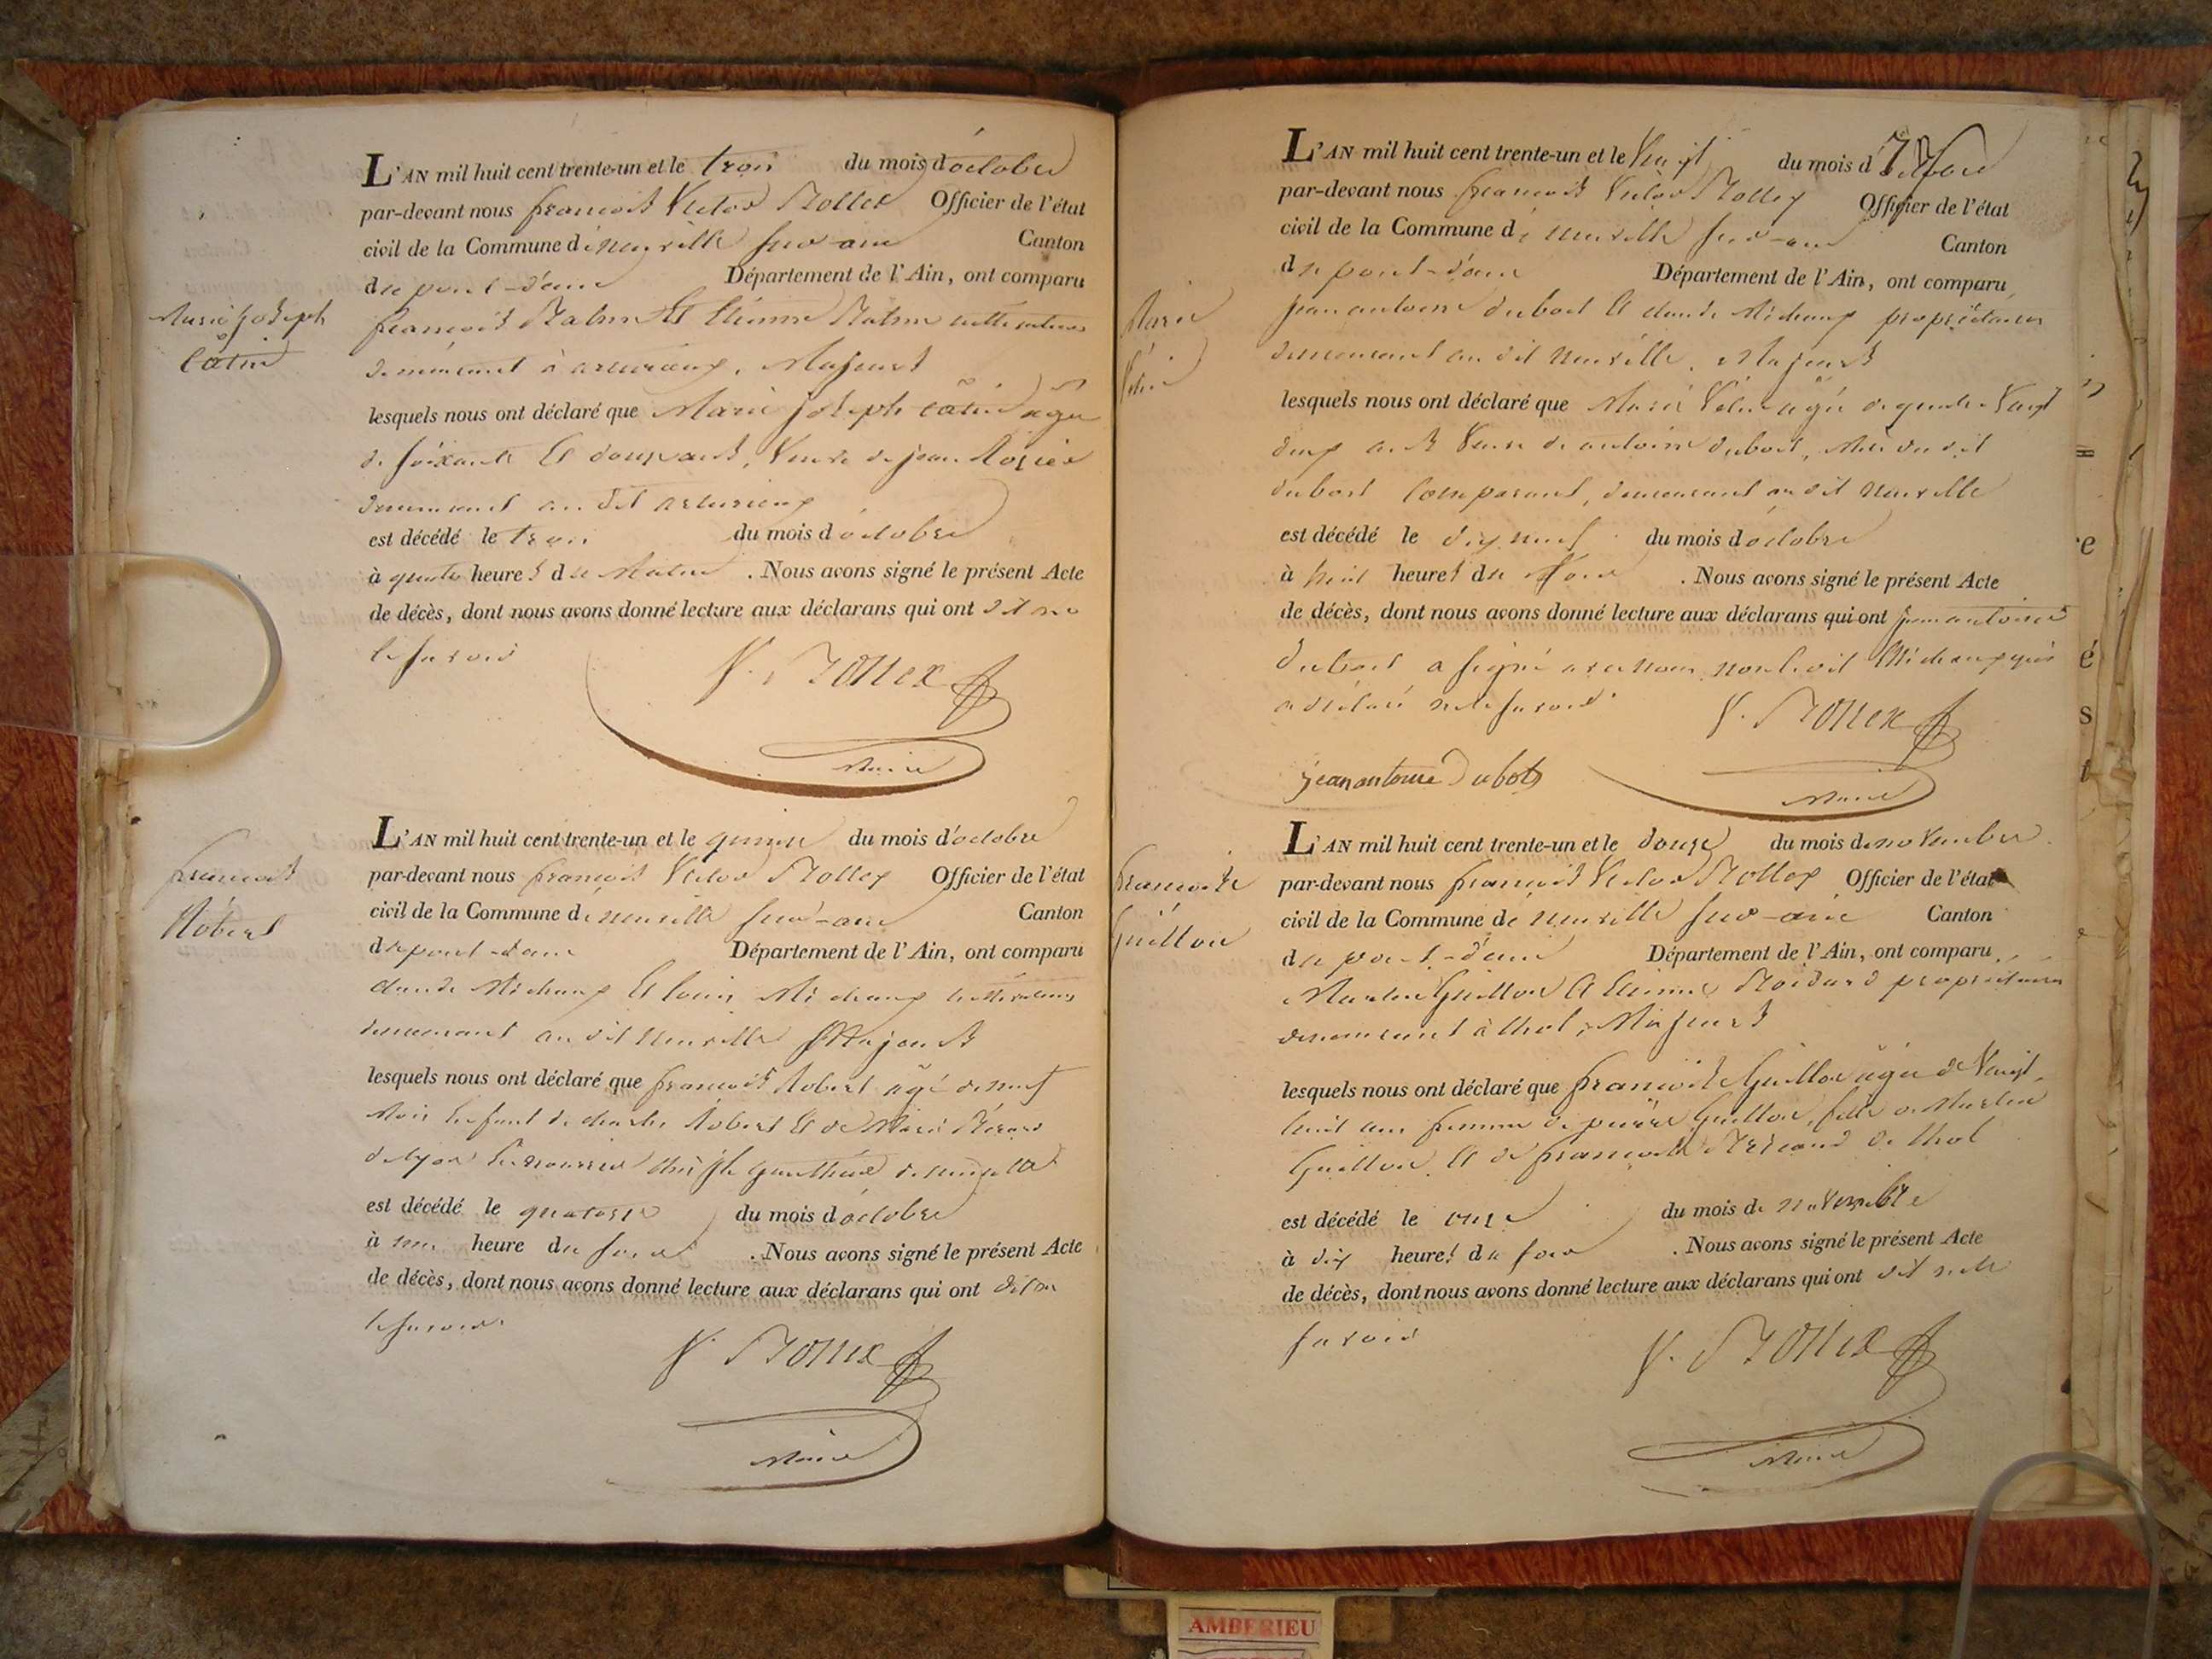 Marie Joseph
Catin
L'AN mil huit cent trente-un et le trois du mois d'octobre
par-devant nous françois Victor Officier de l'état
civil de la Commune de neuville sur-ain Canton
de pont-d'ain Département de l'Ain, ont comparu
françois Et Etienne cultivateurs
demeurant à Majeurs
lesquels nous ont déclaré que Marie Joseph Catin agée
de soixante Et douze ans, Veuve de jean Rosier
demeurant au dit
est décédé le trois du mois d'octobre
à quatre heures du Matin . Nous avons signé le présent Acte
de décès, dont nous avons donné lecture aux déclarans qui ont dit ne
le savoir
V.
Maire
françois
Robert
L'AN mil huit cent trente-un et le quinze du mois d'octobre
par-devant nous françois Victor Officier de l'état
civil de la Commune de neuville sur-ain Canton
de pont-d'ain Département de l'Ain, ont comparu
claude Michaux Et louis Michaux cultivateurs
demeurant au dit neuville Majeurs
lesquels nous ont déclaré que françois Robert agé de neuf
mois Enfant de charles Robert Et de Marie
de lyon En nourrice chès de neuville
est décédé le quatorze du mois d'octobre
à une heure du soir . Nous avons signé le présent Acte
de décès, dont nous avons donné lecture aux déclarans qui ont dit ne
le savoir.
V.
Maire
Marie
L'AN mil huit cent trente-un et le Vingt du mois d'octobre
par-devant nous françois Victor Officier de l'état
civil de la Commune de neuville sur-ain Canton
de pont-d'ain Département de l'Ain, ont comparu
jean antoine dubost Et claude Michaux propriétaires
demeurant au dit neuville. Majeurs
lesquels nous ont déclaré que Marie agée de quatre Vingt
deux ans Veuve de antoine dubost, Mère du dit
dubost Comparant, demeurant au dit neuville
est décédé le dix neuf du mois d'octobre
à huit heures du soir . Nous avons signé le présent Acte
de décès, dont nous avons donné lecture aux déclarans qui ont jean antoine
dubost a signé avec nous non ledit Michaux qui
a déclaré ne le savoir.
V.
jean antoine Dubost
Maire
françoise
Guillon
L'AN mil huit cent trente-un et le douze du mois de novembre
par-devant nous françois Victor Officier de l'état
civil de la Commune de neuville sur-ain Canton
de pont-d'ain Département de l'Ain, ont comparu
Martin Guillon Et Etienne propriétaires
demeurant à thol, Majeurs
lesquels nous ont déclaré que françoise Guillon agée de Vingt
huit ans femme de pierre Guillon, fille de Martin
Guillon Et de françoise de thol
est décédé le onze du mois de novembre
à dix heures du soir . Nous avons signé le présent Acte
de décès, dont nous avons donné lecture aux déclarans qui ont dit ne le
savoir
V.
Maire
AMBERIEU